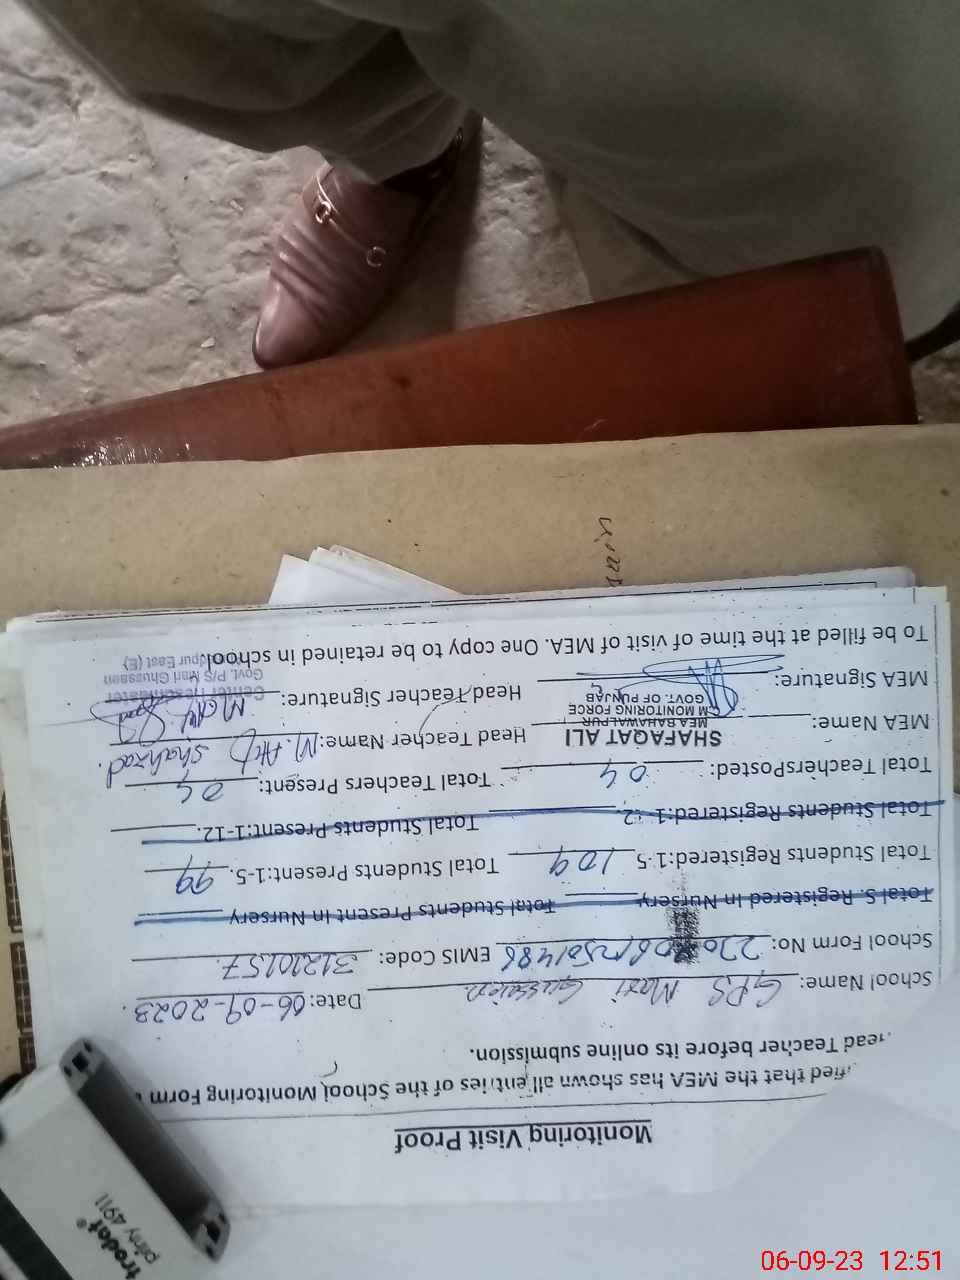 Monitoring Visit Proof
that the MEA has shown all entries of the School Monitoring Form
Teacher before its online submission.
School Name: GPS Mari Date: 06-09-2023.
School Form No: EMIS Code: 31210157
Total S. Registered In Nursery Total Students Present In Nursery
Total Students Registered:1-5 109 Total Students Present:1-5. 99
Total Students Registered:1-12. Total Students Present:1-12.
Total TeachersPosted: 04 Total Teachers Present: 04
MEA Name: SHAFAQAT ALI Head Teacher Name: Shahzad.
MEA BAHAWALPUR
CM MONITORING FORCE
GOVT. OF PUNJAB
MEA Signature: Head Teacher Signature:
Center Headmaster
Govt. P/S Mari Ghussaen
East (E)
To be filled at the time of visit of MEA. One copy to be retained in school.
trodat®
printy 4911
06-09-23 12:51